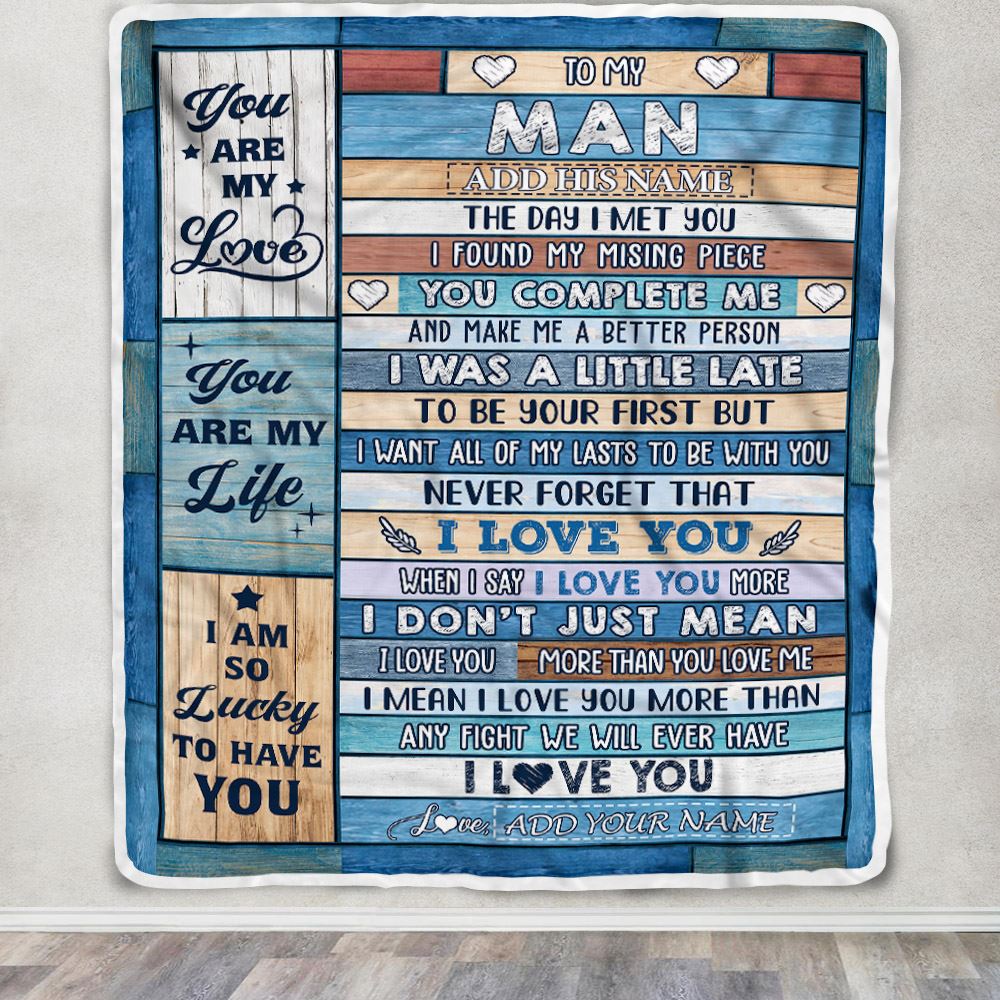 You
ARE
MY
Love
You
ARE MY
Life
I AM
SO
Lucky
TO HAVE
YOU
TO MY
MAN
ADD HIS NAME
THE DAY I MET YOU
I FOUND MY MISING PIECE
YOU COMPLETE ME
AND MAKE ME A BETTER PERSON
I WAS A LITTLE LATE
TO BE YOUR FIRST BUT
I WANT ALL OF MY LASTS TO BE WITH YOU
NEVER FORGET THAT
I LOVE YOU
WHEN I SAY I LOVE YOU MORE
I DON'T JUST MEAN
I LOVE YOU MORE THAN YOU LOVE ME
I MEAN I LOVE YOU MORE THAN
ANY FIGHT WE WILL EVER HAVE
I L♥VE YOU
Love, ADD YOUR NAME